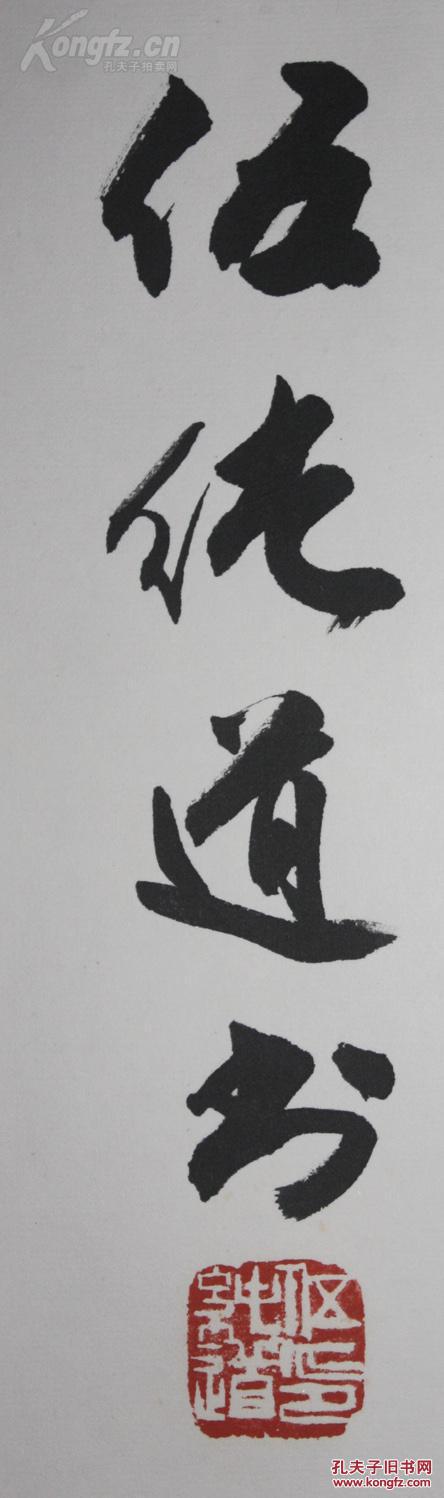 Kongfz.cn
孔夫子拍卖网
伍纯道书
孔夫子旧书网
www.kongfz.com